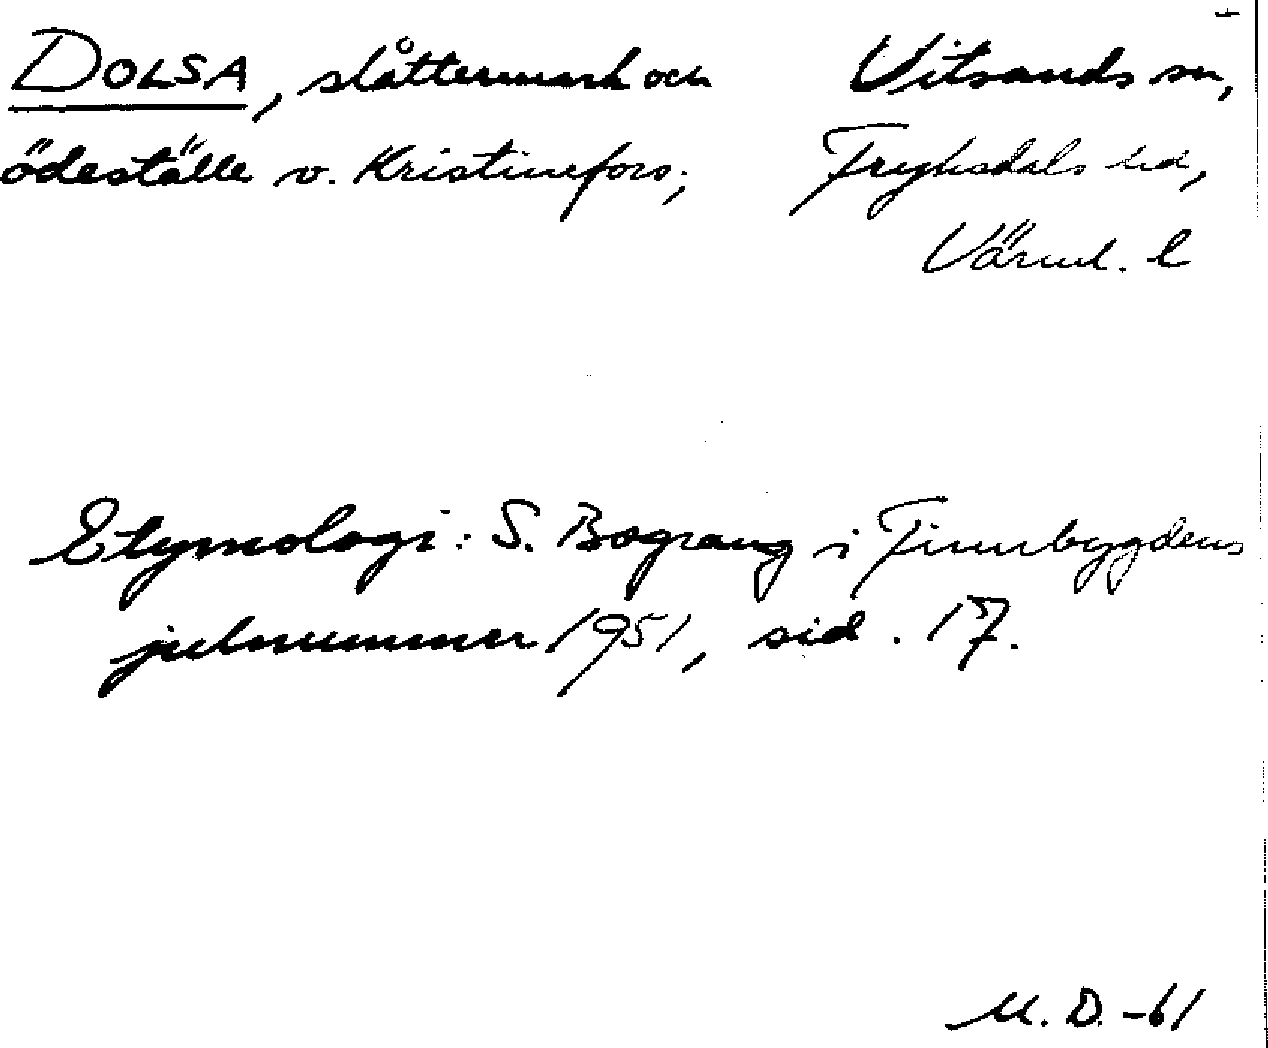 DOLSA, slåttermark och Vitsands sn,
ödeställe v. Kristinefors; Fryksdals hd,
Värml. l
Etymologi: S. Bograng i Finnbygdens
julnummer 1951, sid. 17.
M. D. -61